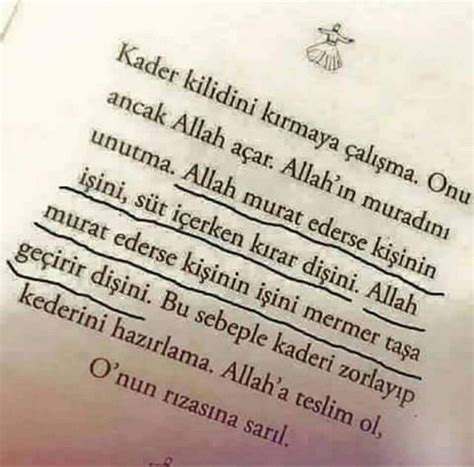 Kader kilidini kırmaya çalışma. Onu
ancak Allah açar. Allah'ın muradını
unutma. Allah murat ederse kişinin
işini, süt içerken kırar dişini. Allah
murat ederse kişinin işini mermer taşa
geçirir dişini. Bu sebeple kaderi zorlayıp
kederini hazırlama. Allah'a teslim ol,
O'nun rızasına sarıl.